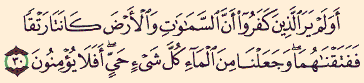 أَوَلَمْ يَرَ ٱلَّذِينَ كَفَرُوٓا۟ أَنَّ ٱلسَّمَـٰوَٰتِ وَٱلْأَرْضَ كَانَتَا رَتْقًا
فَفَتَقْنَـٰهُمَا ۖ وَجَعَلْنَا مِنَ ٱلْمَآءِ كُلَّ شَىْءٍ حَىٍّ ۖ أَفَلَا يُؤْمِنُونَ ٣٠